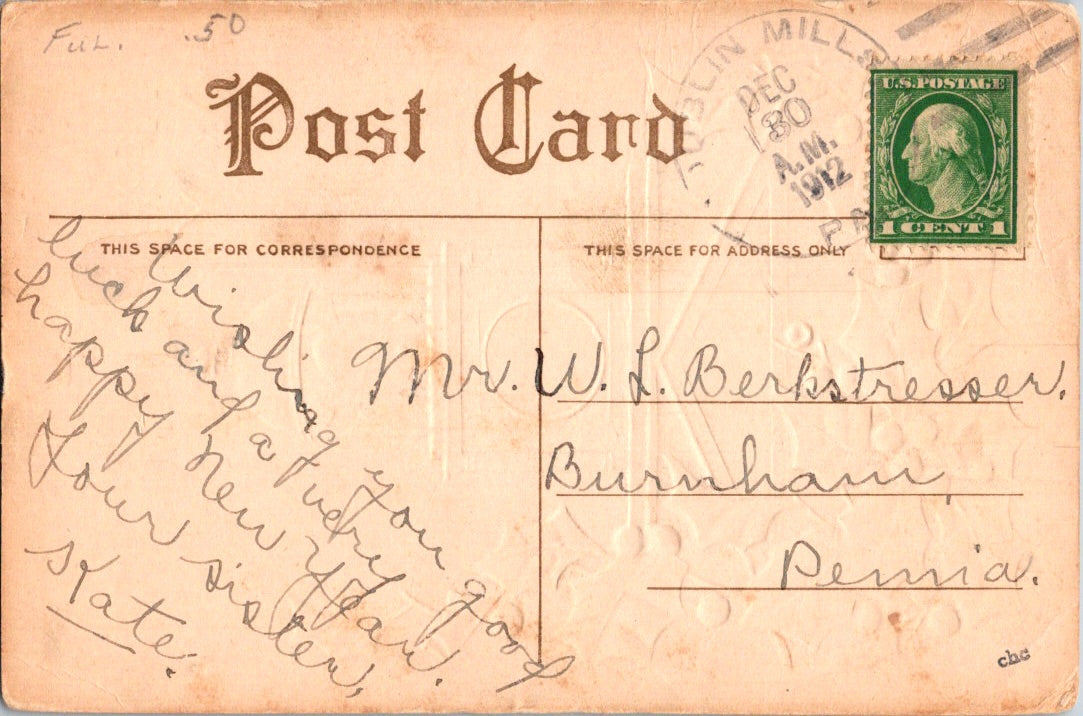 Ful. .50
Post Card
DUBLIN MILLS
DEC
30
A.M.
1912
PA
U.S. POSTAGE
1 CENT 1
THIS SPACE FOR CORRESPONDENCE
THIS SPACE FOR ADDRESS ONLY
Wishing you good
luck and a very
happy New Year.
Your sister,
Kate.
Mr. W. L. Berkstresser.
Burnham,
Penna.
cbc